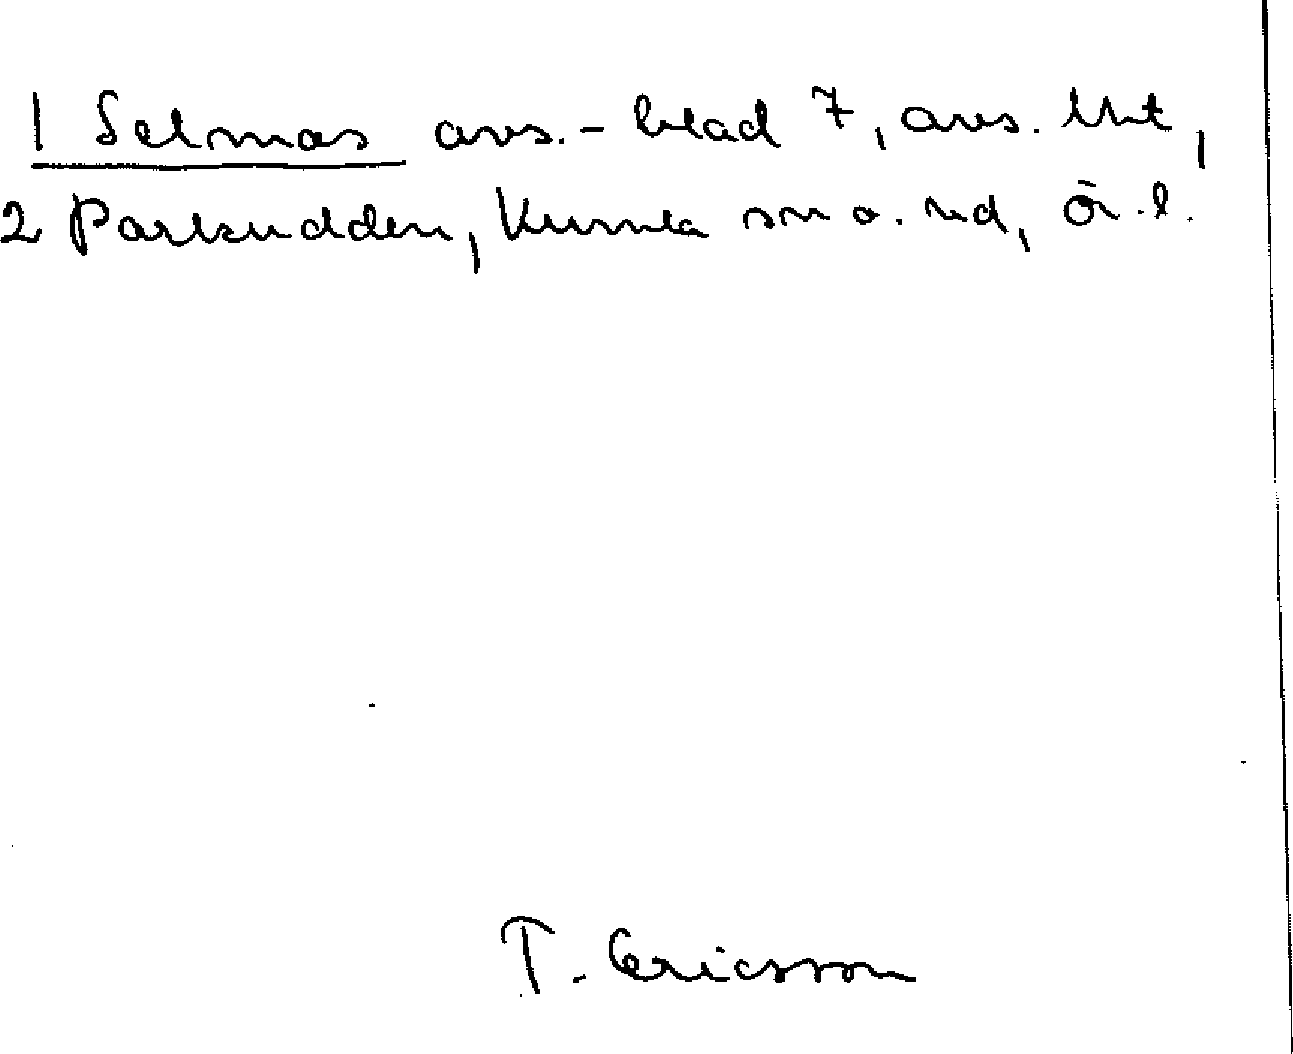 1 Selmas avs.-blad 7, avs. lht,
2 Parkudden, Kumla sn o. hd, ör.l.
T. Ericsson